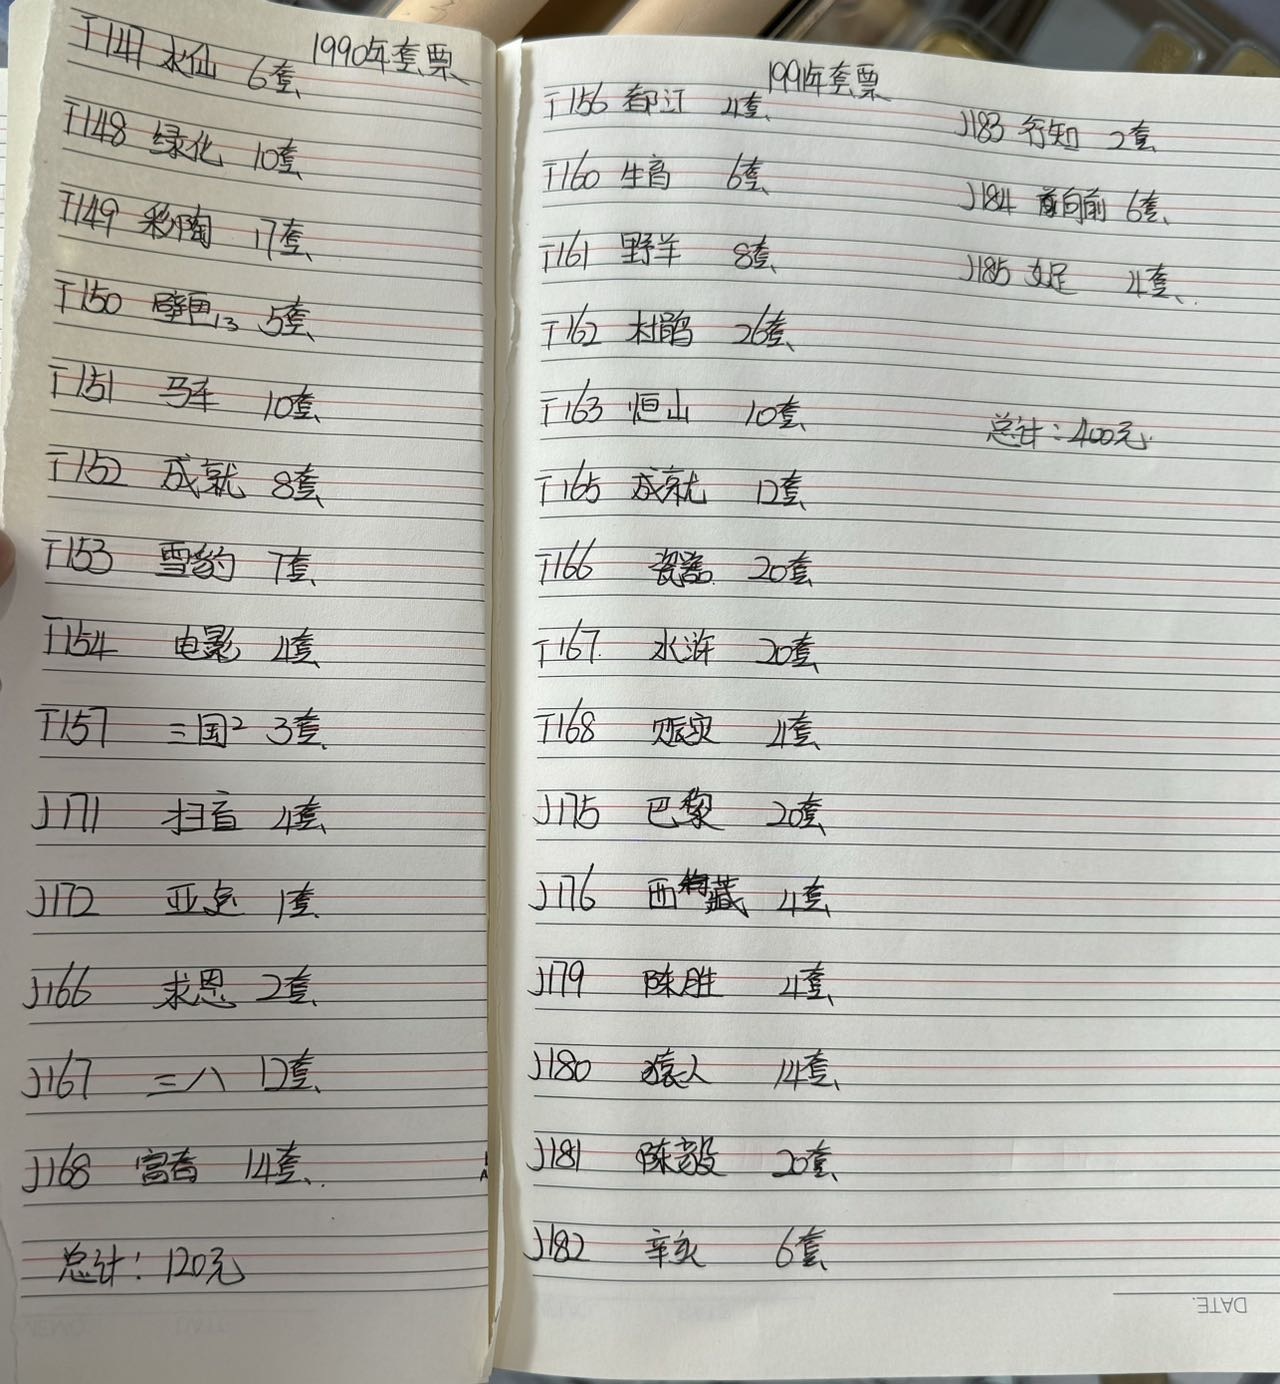 1990年套票
T147 水仙 6套
T148 绿化 10套
T149 彩陶 17套
T150 壁画13 5套
T151 马车 10套
T152 成就 8套
T153 雪豹 7套
T154 电影 4套
T157 三国2 3套
J171 扫盲 4套
J172 亚运 1套
J166 求恩 2套
J167 三八 12套
J168 富春 14套
总计：120元
1991年套票
T156 都江 4套
T160 生育 6套
T161 野羊 8套
T162 杜鹃 26套
T163 恒山 10套
T165 成就 12套
T166 瓷器 20套
T167 水浒 20套
T168 赈灾 4套
J175 巴黎 20套
J176 西藏 4套
J179 陈胜 4套
J180 猿人 14套
J181 陈毅 20套
J182 辛亥 6套
J183 行知 2套
J184 向前 6套
J185 女足 4套
总计：400元
DATE.